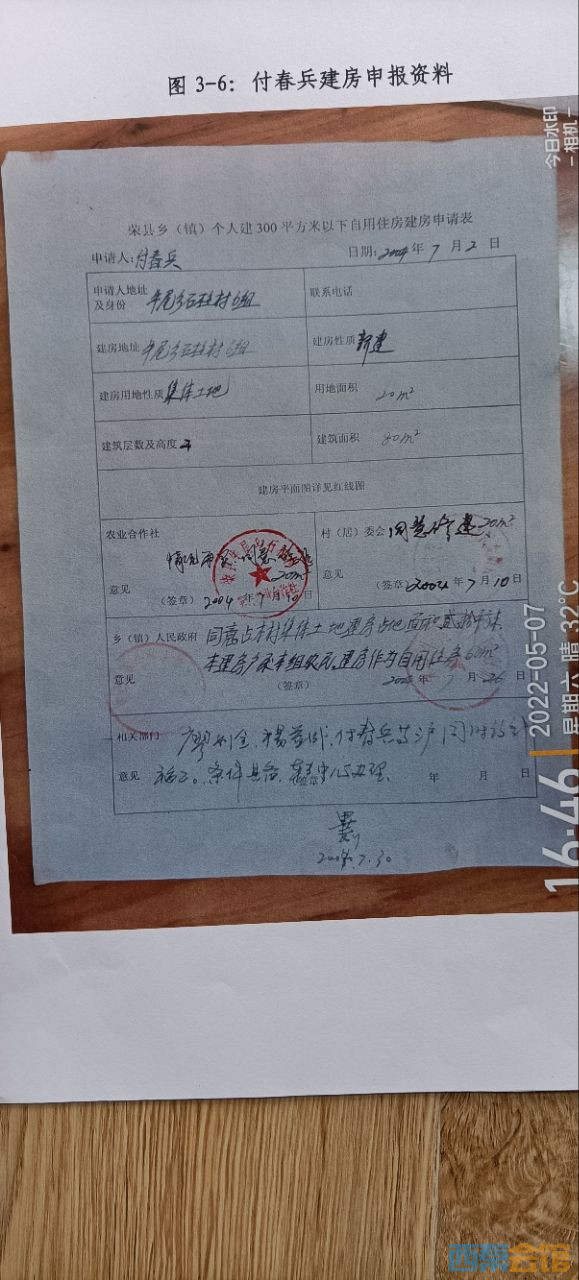 图 3-6: 付春兵建房申报资料
荣县乡（镇）个人建300平方米以下自用住房建房申请表
申请人:付春兵 日期:2004年7月2日
申请人地址及身份 牟尾乡石柱村6组 联系电话
建房地址 牟尾乡石柱村6组 建房性质 新建
建房用地性质 集体土地 用地面积 20m²
建筑层数及高度 建筑面积 80m²
建房平面图详见红线图
农业合作社 村（居）委会 同意修建20m²
情况 同意
20m²
意见 意见
（签章）2004年7月10日 （签章）2004年7月10日
乡（镇）人民政府 同意占本村集体土地建房占地面积贰拾平米
本建房户系本组农民,建房作为自用住房60m²
意见 （签章） 7月26日
相关部门 付春兵 同时
意见 条件具备 办理 年 月 日
2004.7.30
今日水印
-相机-
16:46
2022-05-07
星期六 晴 32°C
西秦会馆